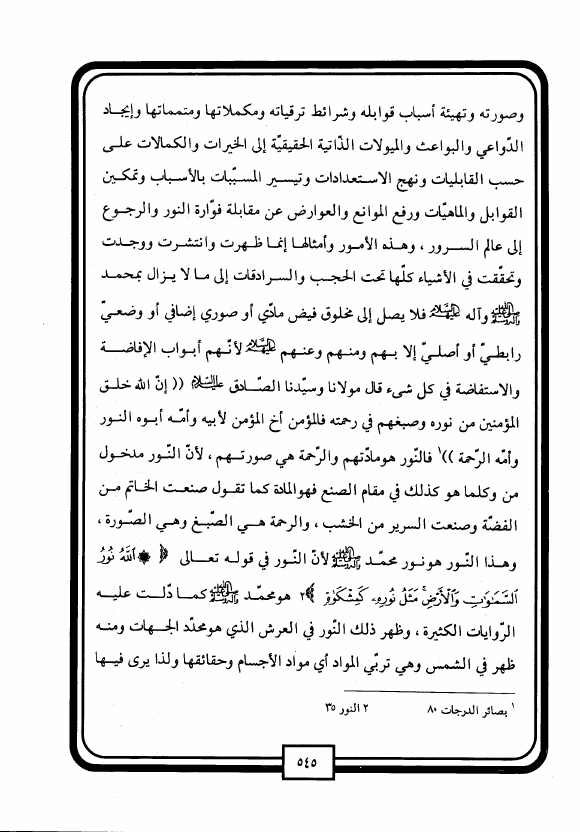 وصورته وتهيئة أسباب قوابله وشرائط ترقياته ومكملاتها ومتمماتها وإيجاد
الدّواعي والبواعث والميولات الذّاتية الحقيقيّة إلى الخيرات والكمالات على
حسب القابليات ونهج الاستعدادات وتيسير المسبّبات بالأسباب وتمكين
القوابل والماهيّات ورفع الموانع والعوارض عن مقابلة فوّارة النور والرجوع
إلى عالم السرور ، وهذه الأمور وأمثالها إنما ظهرت وانتشرت ووجدت
وتحقّقت في الأشياء كلّها تحت الحجب والسرادقات إلى ما لا يزال بمحمد
ﷺ وآله عليهم السلام فلا يصل إلى مخلوق فيض مادّي أو صوري إضافي أو وضعيّ
رابطيّ أو أصليّ إلا بهم ومنهم وعنهم عليهم السلام لأنّهم أبواب الإفاضة
والاستفاضة في كل شيء قال مولانا وسيّدنا الصّادق عليه السلام (( إنّ الله خلق
المؤمنين من نوره وصبغهم في رحمته فالمؤمن أخ المؤمن لأبيه وأمّه أبوه النور
وأمّه الرحمة ))١ فالنّور هو مادّتهم والرحمة هي صورتهم ، لأنّ النّور مدخول
من وكلما هو كذلك في مقام الصنع فهو المادة كما تقول صنعت الخاتم من
الفضّة وصنعت السرير من الخشب ، والرحمة هي الصّبغ وهي الصّورة ،
وهذا النّور هو نور محمّد ﷺ لأنّ النّور في قوله تعالى ﴿ ۞ ٱللَّهُ نُورُ
ٱلسَّمَٰوَٰتِ وَٱلۡأَرۡضِۚ مَثَلُ نُورِهِۦ كَمِشۡكَوٰةٖ ﴾٢ هو محمّد ﷺ كما دّلت عليه
الرّوايات الكثيرة ، وظهر ذلك النّور في العرش الذي هو محدّد الجهات ومنه
ظهر في الشمس وهي تربّي المواد أي مواد الأجسام وحقائقها ولذا يرى فيها
١ بصائر الدرجات ٨٠ ٢ النور ٣٥
٥٤٥